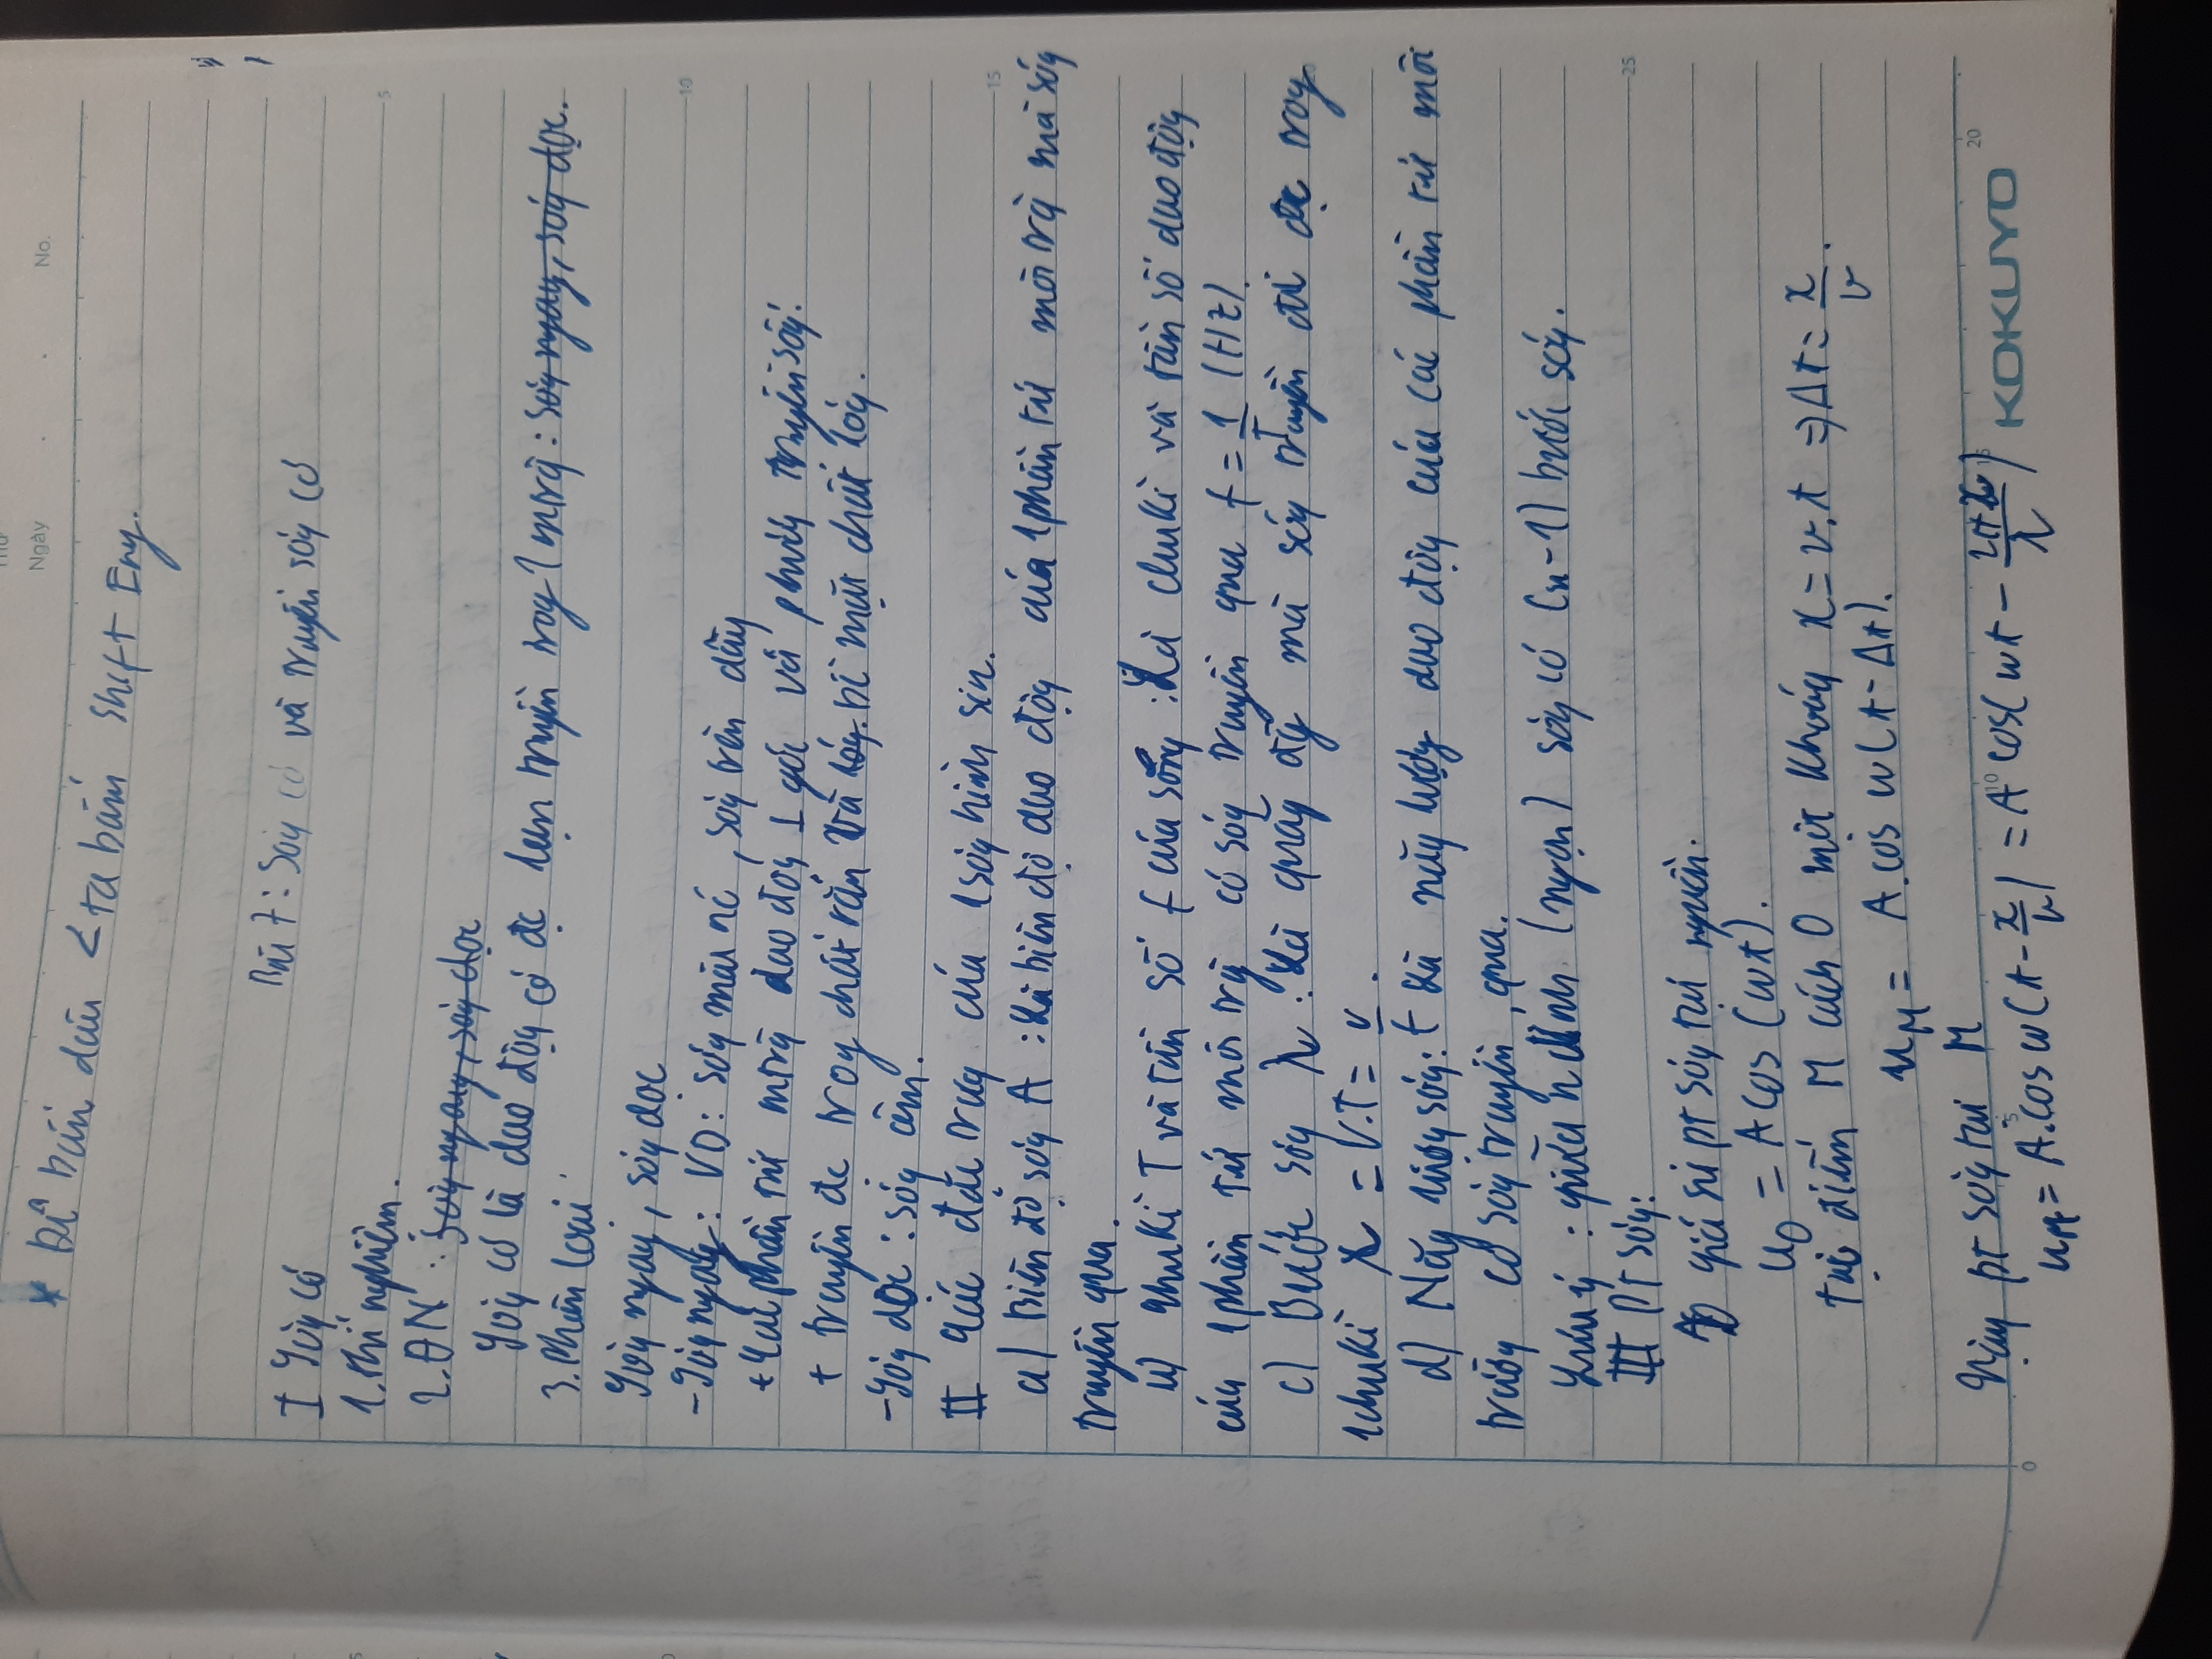 Thứ
Ngày . . No.
* Để bấm dấu ∠ ta bấm shift Eng.
Bài 7: Sóng cơ và truyền sóng cơ
I Sóng cơ
1. Thí nghiệm.
2. ĐN : Sóng ngang, sóng dọc
Sóng cơ là dao động cơ đc lan truyền trong 1 mtrg : sóng ngang, sóng dọc.
3. Phân loại
Sóng ngang, sóng dọc
- Sóng ngang: VD: sóng mặt nc, sóng trên dây
+ Các phần tử mtrg dao động ⊥ góc vs phương truyền sóng.
+ truyền đc trong chất rắn và lỏng. bề mặt chất lỏng.
- Sóng dọc : sóng âm.
II Các đặc trưng của 1 sóng hình sin.
a) Biên độ sóng A : Là biên độ dao động của 1 phần tử môi trg mà sóng
truyền qua.
b) Chu kì T và tần số f của sóng : Là chu kì và tần số dao động
của 1 phần tử môi trg có sóng truyền qua f = 1/T (Hz).
c) Bước sóng λ : Là quãng đg mà sóng truyền đi đc trong
1 chu kì λ = v.T = v/f.
d) Năng lượng sóng: Là năng lượng dao động của các phần tử môi
trường có sóng truyền qua.
Lưu ý : giữa n đỉnh (ngọn) sóng có (n-1) bước sóng.
III Pt sóng:
giả sử pt sóng tại nguồn.
u₀ = A cos (ωt).
tại điểm M cách O một khoảng x = v.t ⇒ Δt = x/v.
u_M = A.cos ω(t - Δt).
Vậy pt sóng tại M
u_M = A.cos ω(t - x/v) = A cos(ωt - 2πx/λ)
KOKUYO